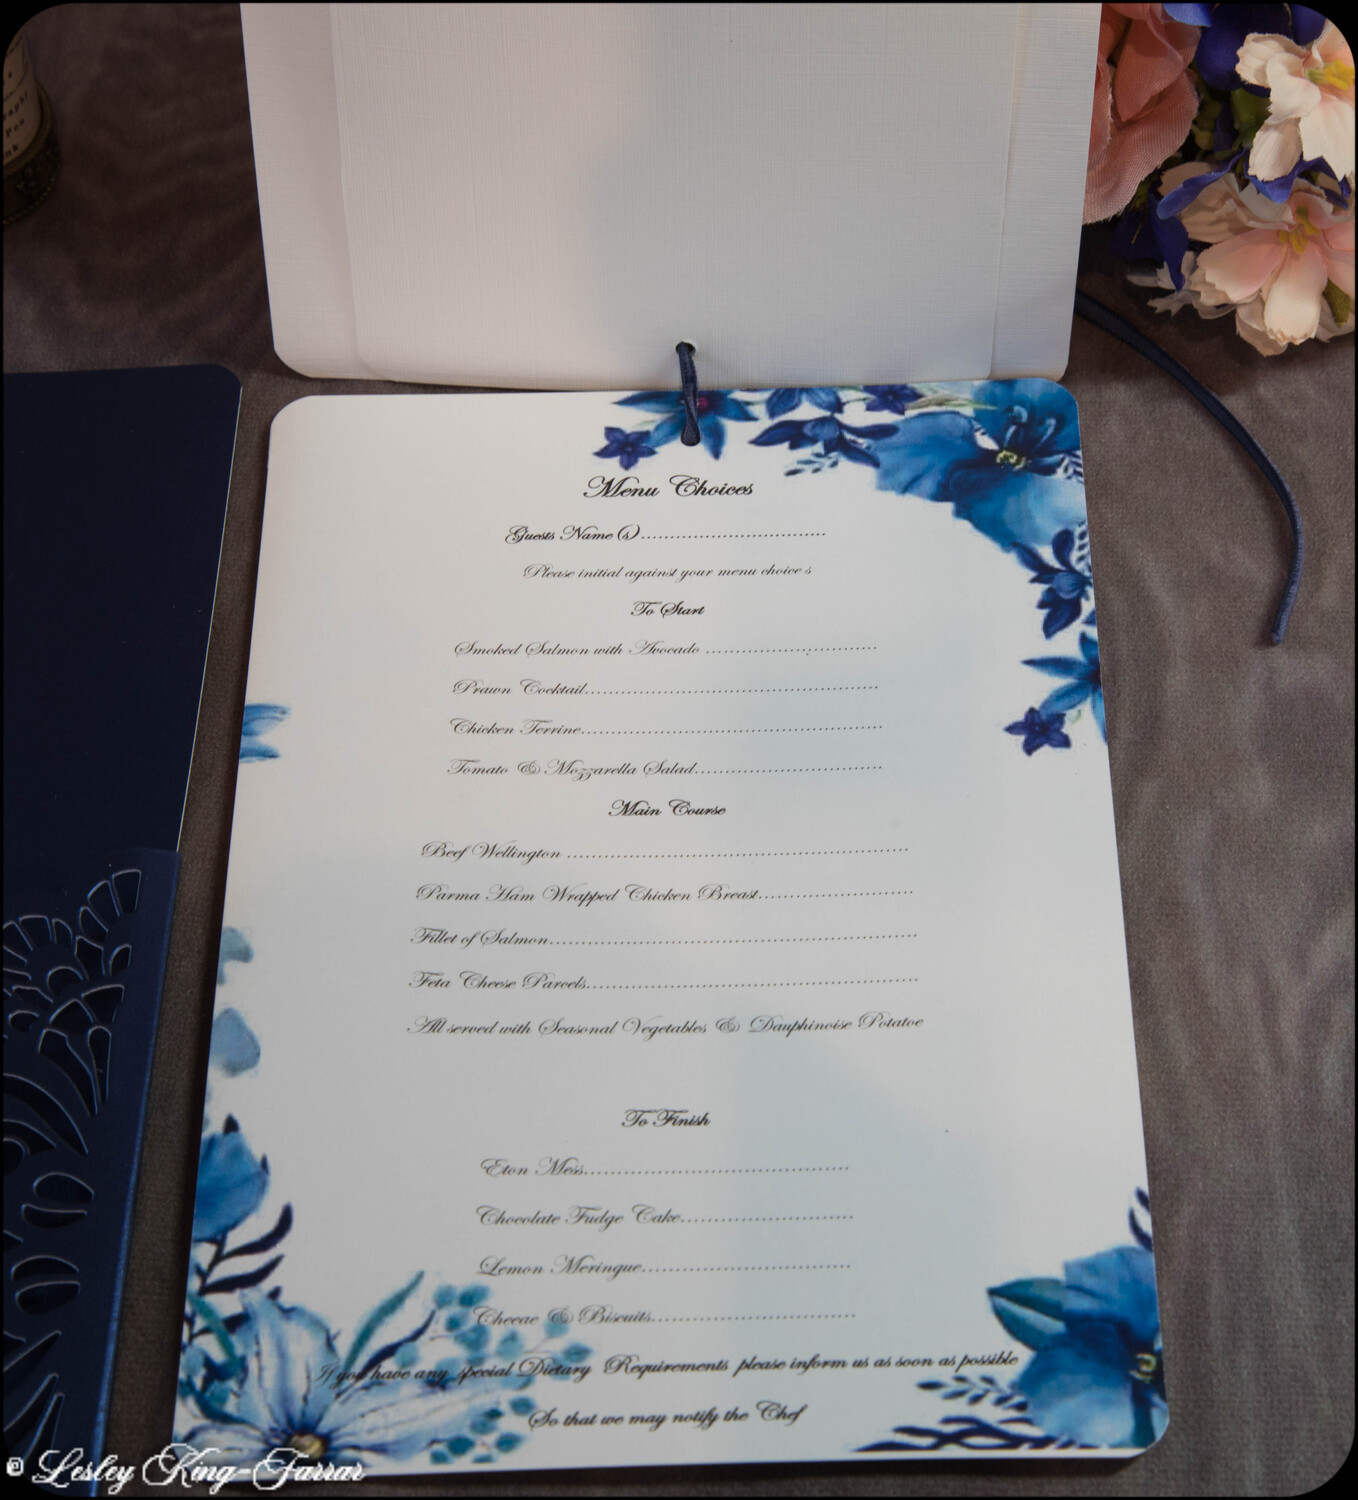 Menu Choices
Guests Name (s)................................
Please initial against your menu choice s
To Start
Smoked Salmon with Avocado .............................
Prawn Cocktail..................................................
Chicken Terrine...................................................
Tomato & Mozzarella Salad................................
Main Course
Beef Wellington ......................................................
Parma Ham Wrapped Chicken Breast.........................
Fillet of Salmon..........................................................
Feta Cheese Parcels.....................................................
All served with Seasonal Vegetables & Dauphinoise Potatoe
To Finish
Eton Mess...........................................
Chocolate Fudge Cake............................
Lemon Meringue..................................
Cheeae & Biscuits.................................
If you have any special Dietary Requirements please inform us as soon as possible
So that we may notify the Chef
© Lesley King-Farrar